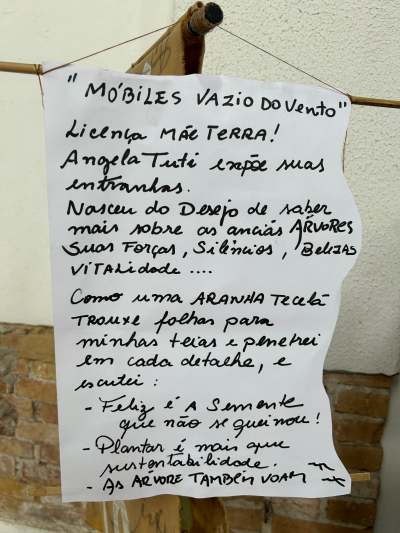 "MÓBILES VAZIO DO VENTO"
LICENÇA MÃE TERRA!
Angela Tuti expõe suas
entranhas.
Nasceu do Desejo de saber
mais sobre as anciãs ÁRVORES
Suas Forças, Silêncios, BELEZAS
VITALIDADE ....
Como uma ARANHA Tecelã
TROUXE folhas para
minhas teias e penetrei
em cada detalhe, e
escutei:
- Feliz é A Semente
que não se queimou!
- Plantar é mais que
sustentabilidade.
- AS ARVORE TAMBÉM VOAM